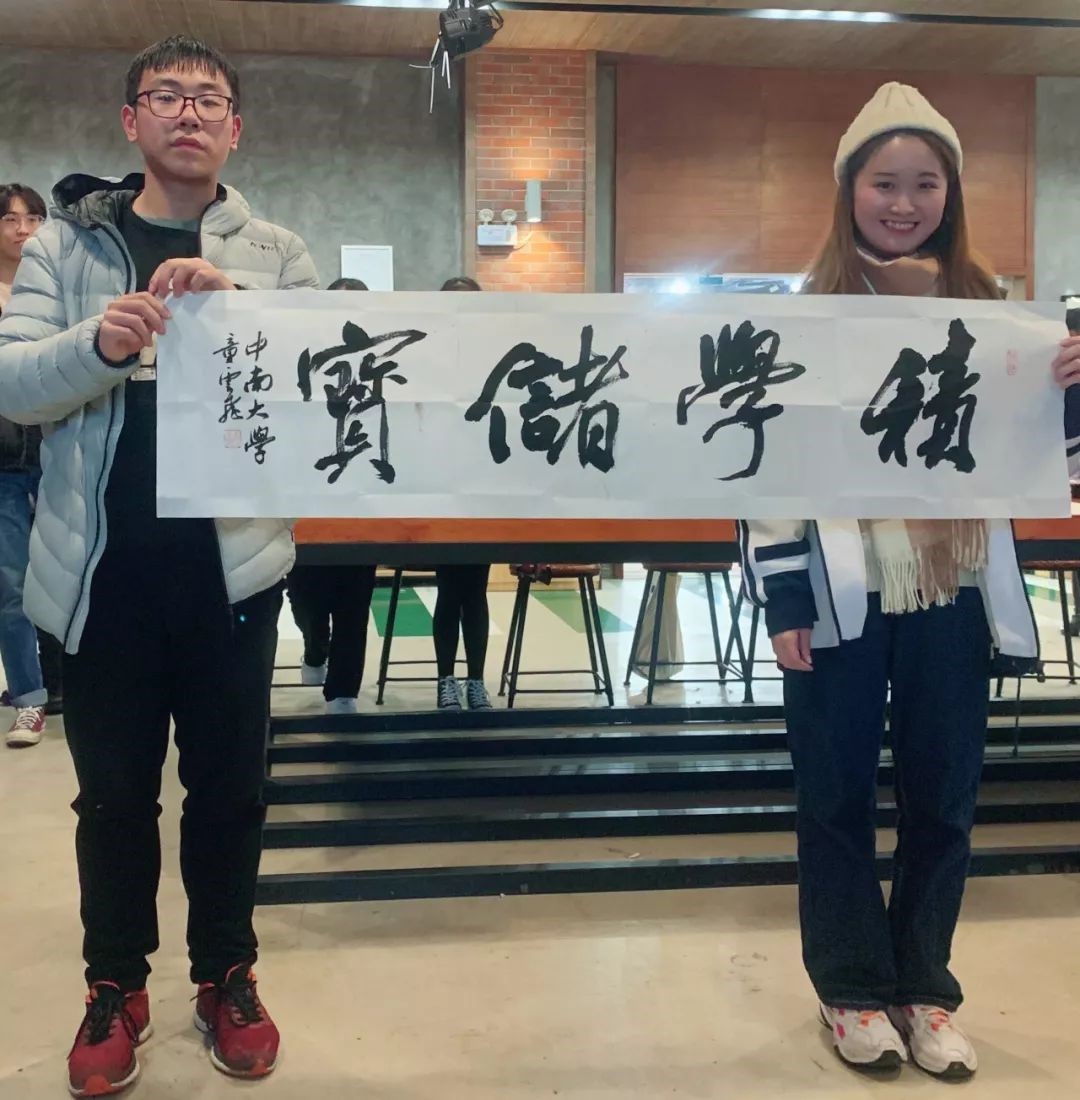 積學儲寶
中南大學
童雲飛